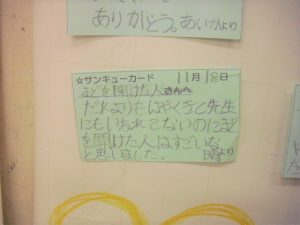 ありがとう。あいかより
☆サンキューカード 11月18日
まどを開けた人さんへ
だれよりもはやくきて先生
にもいわれてないのにまど
を開けた人はすごいな
と思いました。 晴より